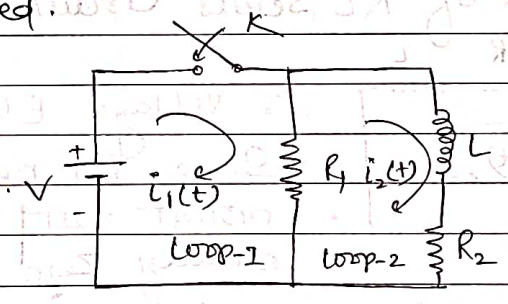 ed.
K
+
V
-
i₁(t)
R₁
i₂(t)
L
R₂
Loop-1
Loop-2